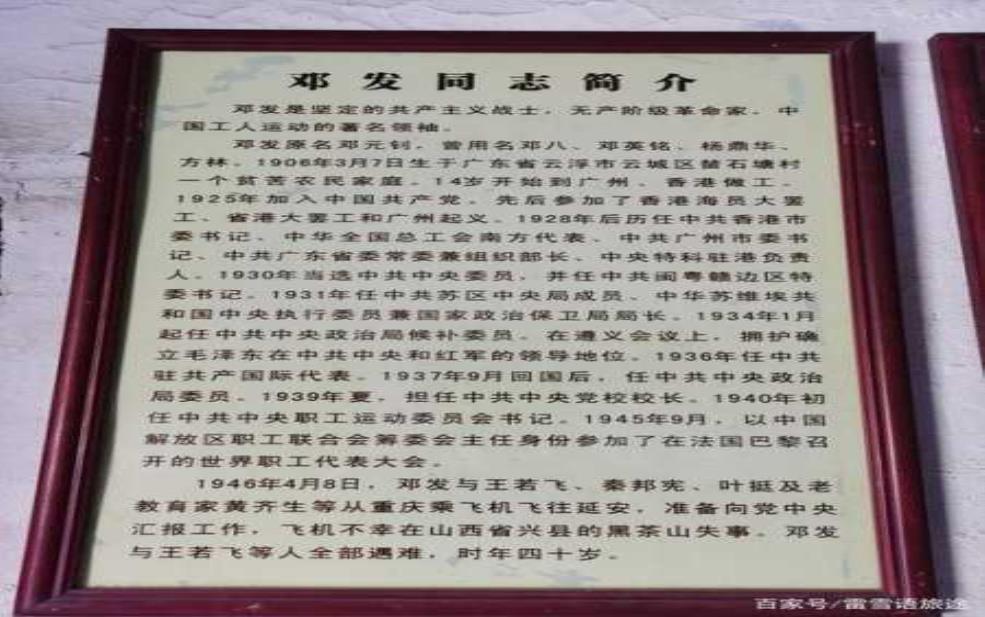 邓发同志简介
邓发是坚定的共产主义战士，无产阶级革命家，中
国工人运动的著名领袖。
邓发原名邓元钊，曾用名邓八、邓英铭、杨鼎华、
方林。1906年3月7日生于广东省云浮市云城区礎石塘村
一个贫苦农民家庭。14岁开始到广州、香港做工。
1925年加入中国共产党。先后参加了香港海员大罢
工、省港大罢工和广州起义。1928年后历任中共香港市
委书记、中华全国总工会南方代表、中共广州市委书
记、中共广东省委常委兼组织部长、中央特科驻港负责
人。1930年当选中共中央委员，并任中共闽粤赣边区特
委书记。1931年任中共苏区中央局成员、中华苏维埃共
和国中央执行委员兼国家政治保卫局局长。1934年1月
起任中共中央政治局候补委员。在遵义会议上，拥护确
立毛泽东在中共中央和红军的领导地位。1936年任中共
驻共产国际代表。1937年9月回国后，任中共中央政治
局委员。1939年夏，担任中共中央党校校长。1940年初
任中共中央职工运动委员会书记。1945年9月，以中国
解放区职工联合会筹委会主任身份参加了在法国巴黎召
开的世界职工代表大会。
1946年4月8日，邓发与王若飞、秦邦宪、叶挺及老
教育家黄齐生等从重庆乘飞机飞往延安，准备向党中央
汇报工作，飞机不幸在山西省兴县的黑茶山失事。邓发
与王若飞等人全部遇难，时年四十岁。
百家号/雷雪语旅途